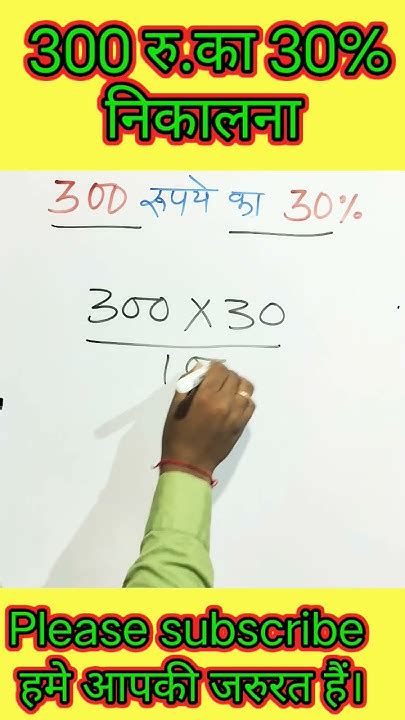 300 रु.का 30%
निकालना
300 रूपये का 30%
300 X 30
Please subscribe
हमे आपकी जरुरत हैं।